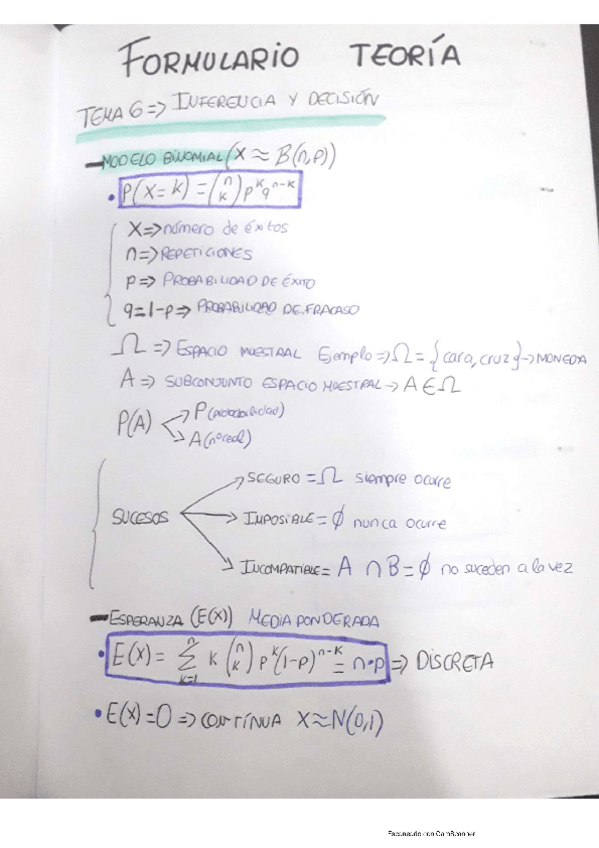 FORMULARIO TEORÍA
TEMA 6 => INFERENCIA Y DECISIÓN
- MODELO BINOMIAL (X ≈ B(n,p))
• P(X=k) = (n k) p^k q^n-k
X => número de éxitos
n => REPETICIONES
p => PROBABILIDAD DE ÉXITO
q=1-p => PROBABILIDAD DE FRACASO
Ω => ESPACIO MUESTRAL Ejemplo => Ω = {cara, cruz} -> MONEDA
A => SUBCONJUNTO ESPACIO MUESTRAL -> A ∈ Ω
P(A)
P (probabilidad)
A (nº real)
SUCESOS
SEGURO = Ω siempre ocurre
IMPOSIBLE = ∅ nunca ocurre
INCOMPATIBLE = A ∩ B = ∅ no suceden a la vez
- ESPERANZA (E(X)) MEDIA PONDERADA
• E(X) = Σ k=1 n k (n k) p^k (1-p)^n-k = n·p => DISCRETA
• E(X) = 0 => CONTÍNUA X≈N(0,1)
Escaneado con CamScanner